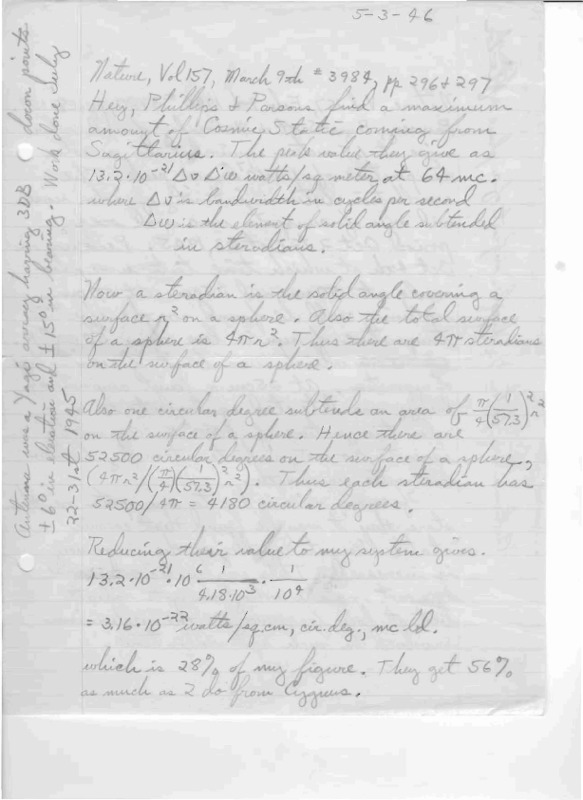 5-3-46
Nature, Vol 157, March 9th #3984, pp 296 & 297
Hey, Phillips & Parsons find a maximum
amount of Cosmic Static coming from
Sagittarius. The peak value they give as
13.2·10⁻²¹ Δν Δω watts/sq meter at 64 mc.
where Δν is bandwidth in cycles per second
Δω is the element of solid angle subtended
in steradians.
Now a steradian is the solid angle covering a
surface r² on a sphere. Also the total surface
of a sphere is 4πr². Thus there are 4π steradians
on the surface of a sphere.
Also one circular degree subtends an area of π/4 (1/57.3)² r²
on the surface of a sphere. Hence there are
52500 circular degrees on the surface of a sphere,
(4πr²/(π/4)(1/57.3)² r²). Thus each steradian has
52500/4π = 4180 circular degrees.
Reducing their value to my system gives.
13.2·10⁻²¹·10⁶ 1/4.18·10³ · 1/10⁴
= 3.16·10⁻²² watts/sq.cm, cir.deg., mc bd.
which is 28% of my figure. They get 56%
as much as I do from Cygnus.
Antenna was a Yagi array having 3DB down points
±6° in elevation and ±15° in bearing. Work done July
22-31st 1945